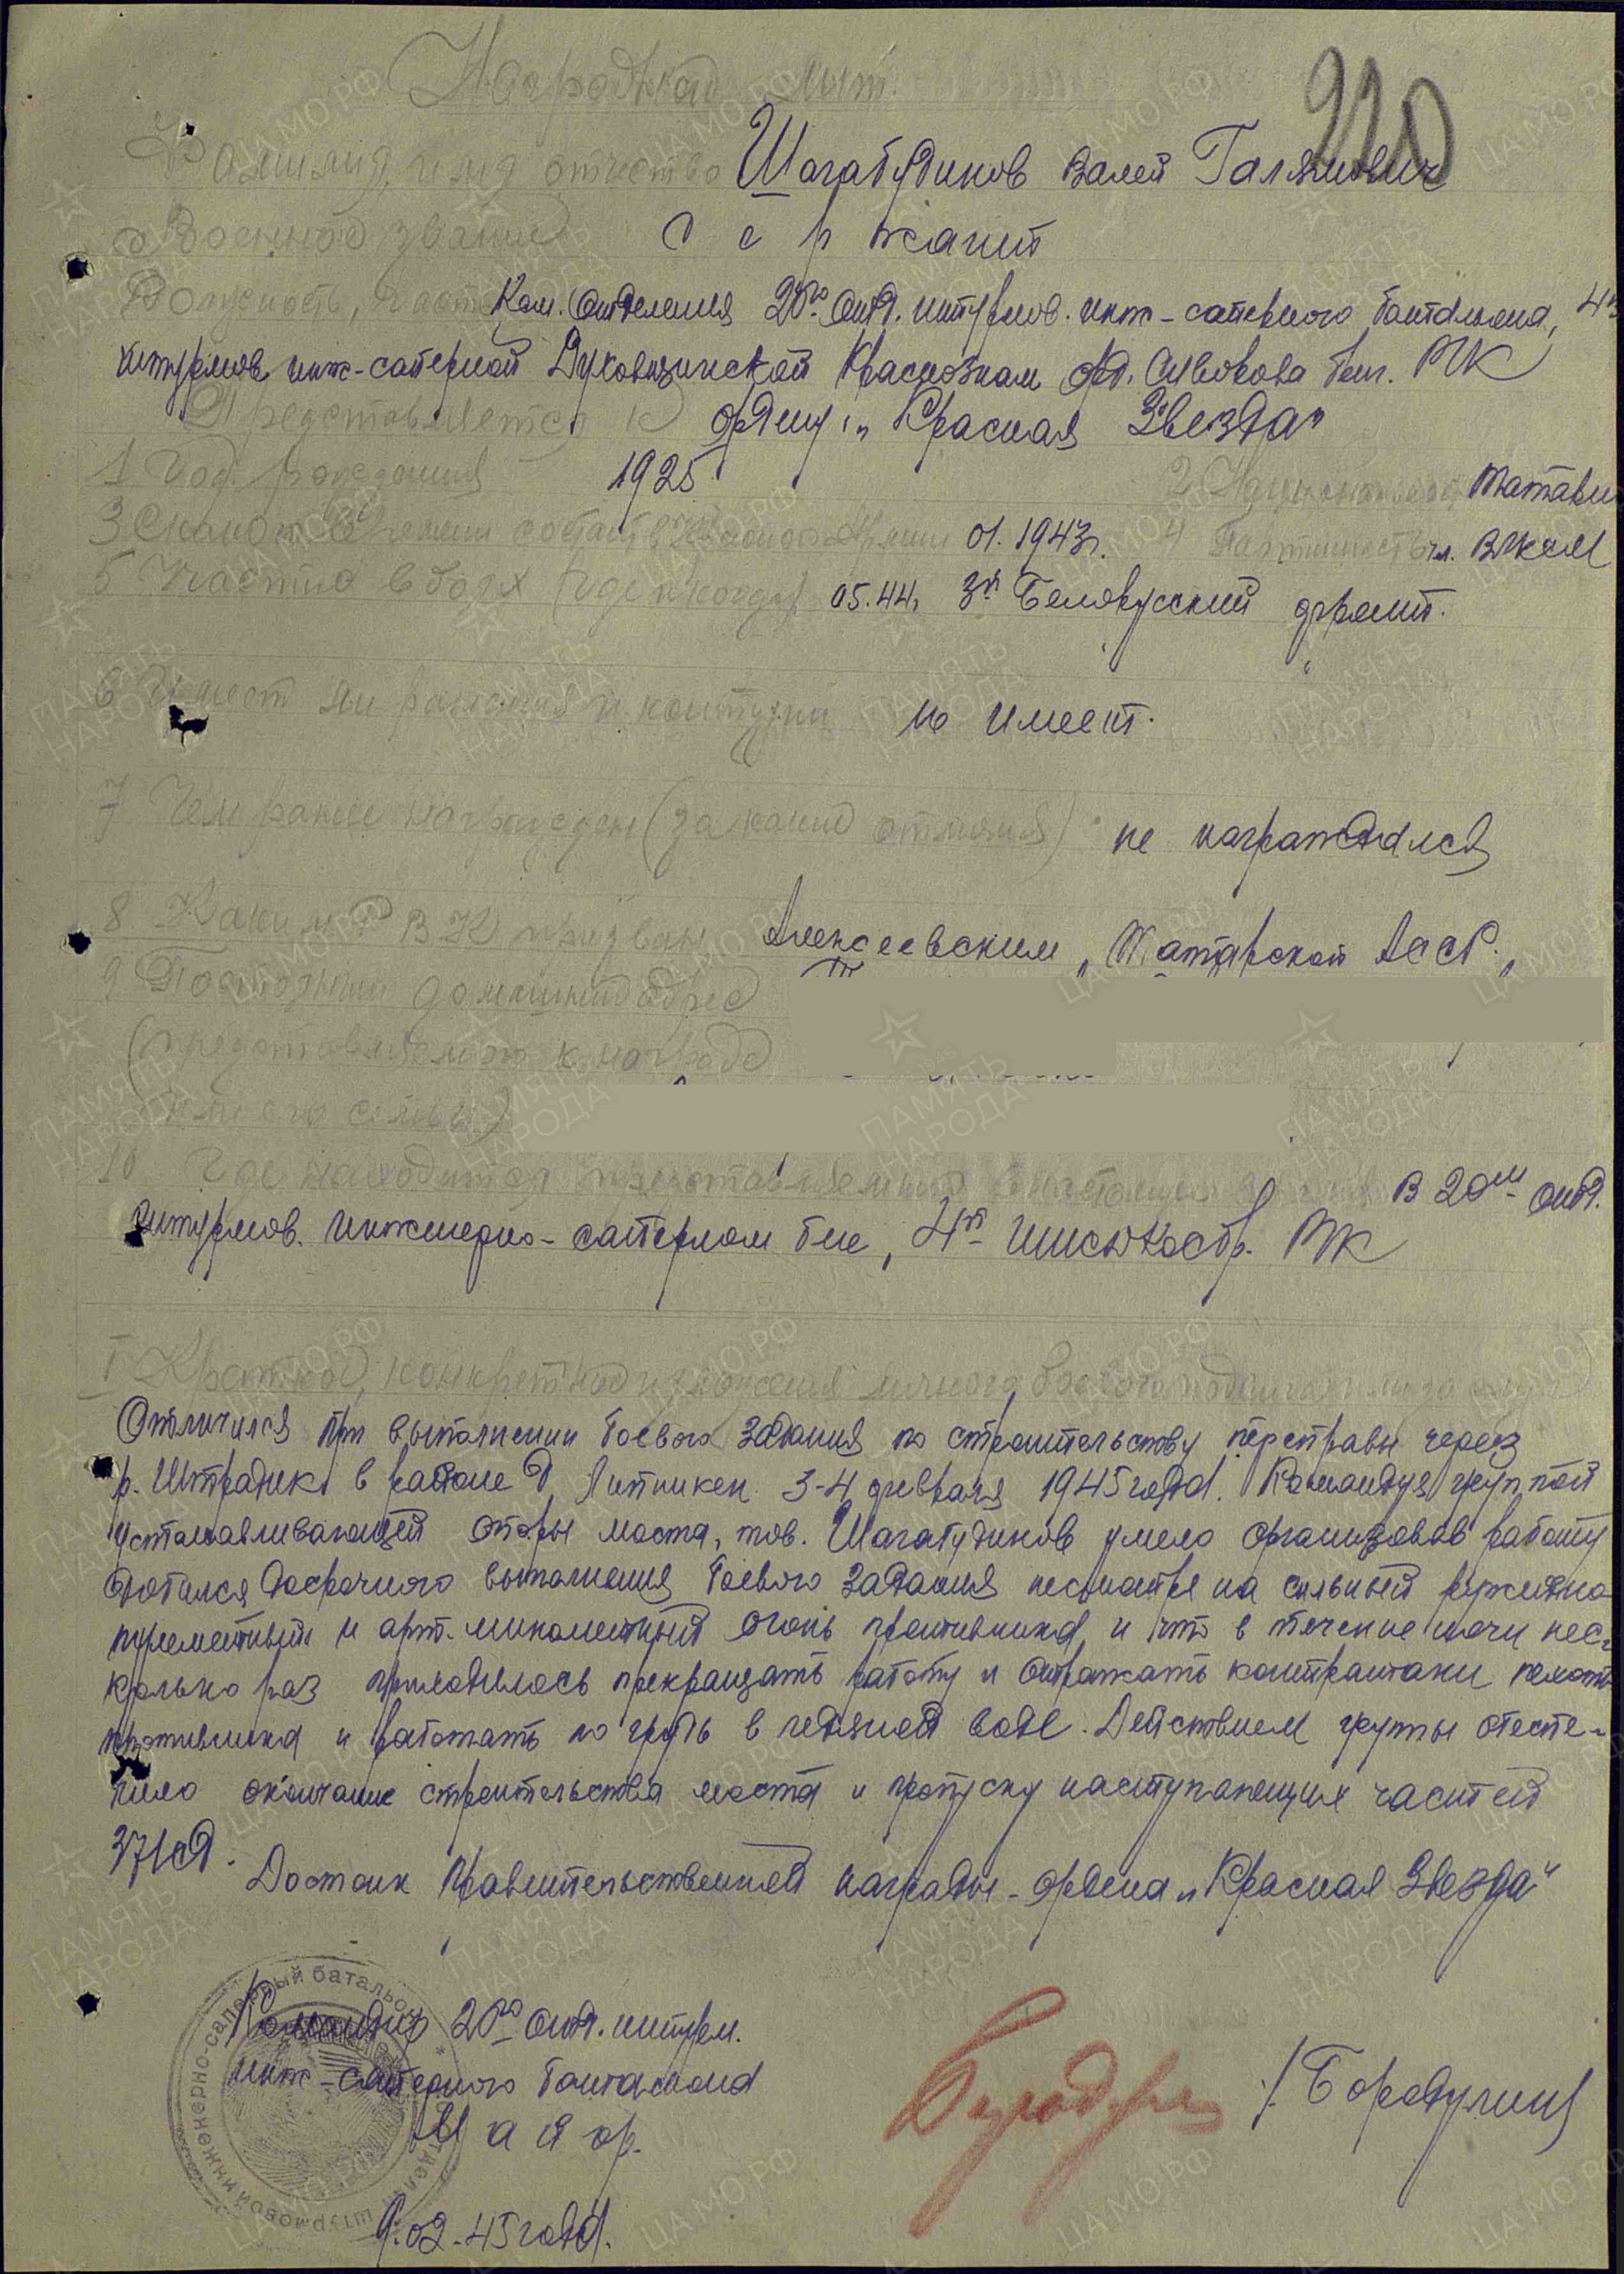 Наградной лист.
220
Фамилия, имя отчество Шагабудинов Валей Галямович
Военное звание Сержант
Должность, часть Ком. Отделения 20го отд. штурмов. инж-саперного батальона, 4й
штурмов. инж-саперной Духовщинской Краснознам орд. Суворова бриг. РГК
Представляется к ордену „Красная Звезда"
1 Год рождения 1925 2 Национальность Татарин
3 С какого времени состоит в Красной Армии 01.1943г. 4 Партийность чл. ВЛКСМ
5 Участие в боях (где и когда) 05.44, 3й Белорусский фронт.
6 Имеет ли ранения и контузии не имеет.
7 Чем ранее награжден (за какие отличия) не награждался
8 Каким РВК призван Алексеевским, Татарской АССР.,
9 Постоянный домашний адрес
(представляемого к награде
и его семьи)
10 Где находится представляемый в настоящее время В 20м отд.
штурмов. инженерно-саперном б-не, 4й шисыКосбр. РГК
I Краткое, конкретное изложение личного боевого подвига или заслуг
Отличился при выполнении боевого задания по строительству переправы через
р. Штрадик в районе д. Липникен 3-4 февраля 1945 года. Командуя группой
устанавливающей опоры моста, тов. Шагабудинов умело организовав работу
добился досрочного выполнения боевого задания несмотря на сильный ружейно-
пулеметный и арт.-минометный огонь противника, и что в течение ночи нес-
колько раз приходилось прекращать работу и отражать контратаки пехоты
противника и работать по грудь в ледяной воде. Действием группы обеспе-
чило окончание строительства моста и пропуску наступающих частей
371сд.
Достоин правительственной награды - ордена „Красная Звезда"
Командир 20го отд. штурм.
инж-саперного батальона
Майор.
/Бородулин/
9.02.45 года.